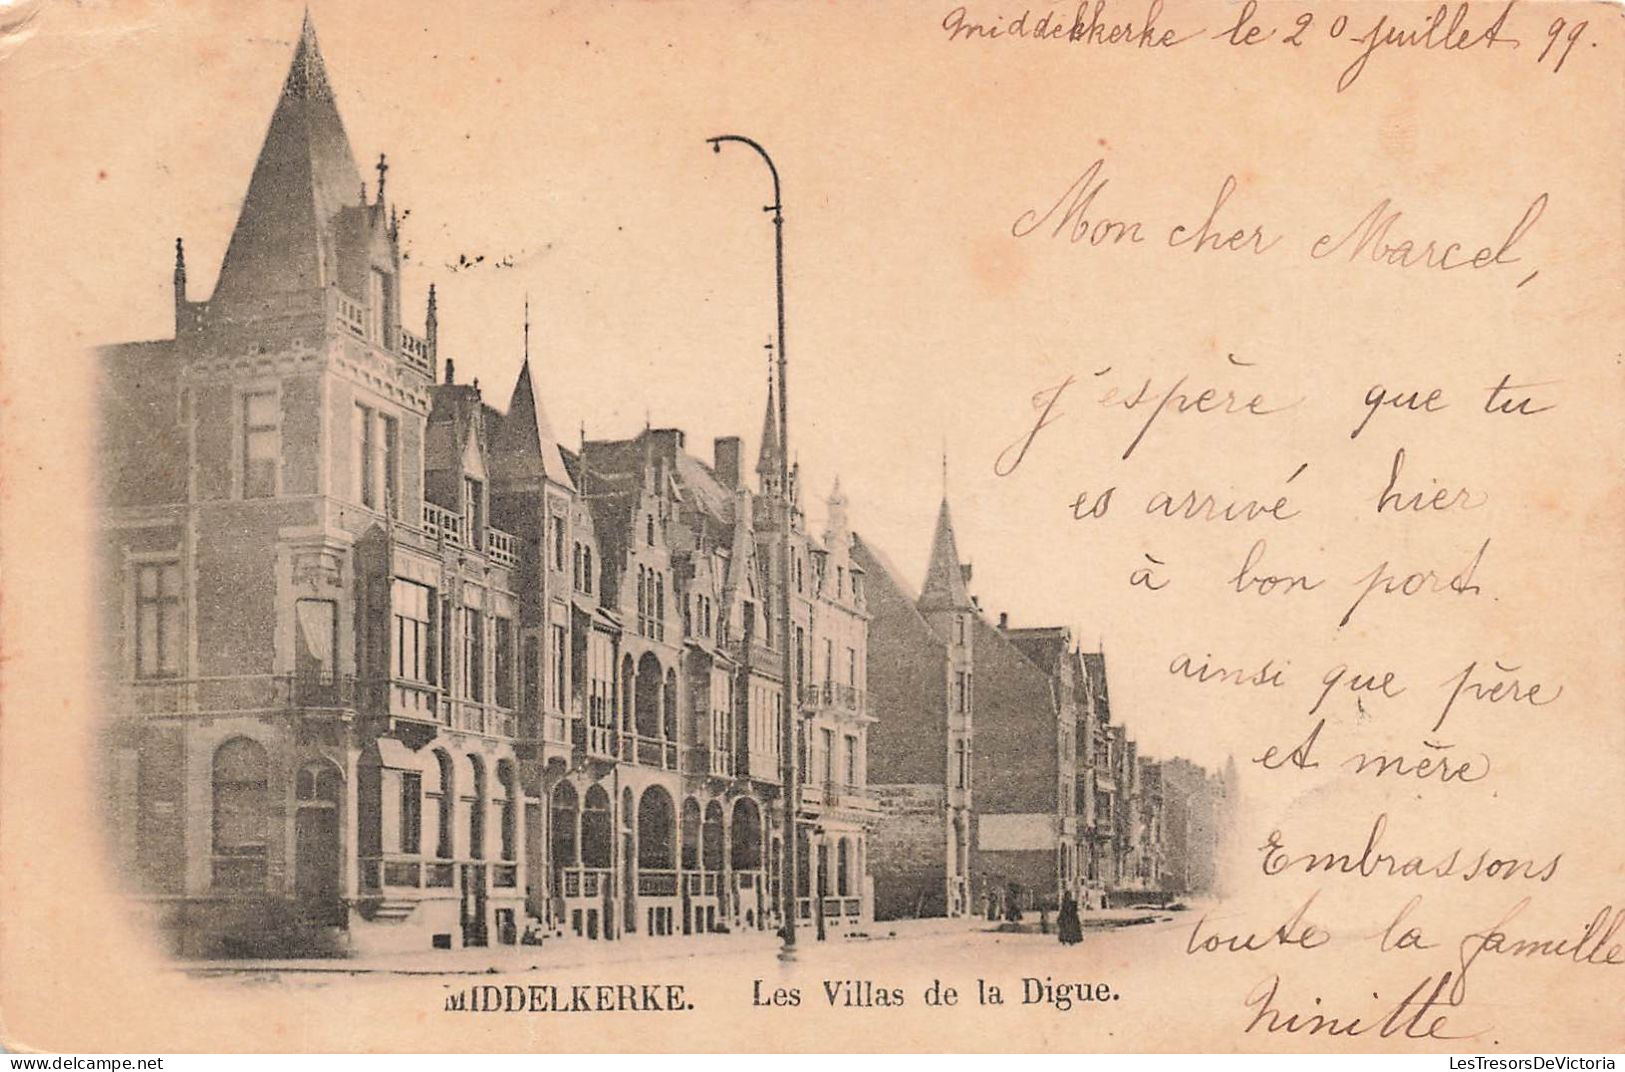 Middelkerke le 20 juillet 99.
Mon cher Marcel,
j'espère que tu
es arrivé hier
à bon port.
ainsi que père
et mère
Embrassons
toute la famille
Ninitte.
MIDDELKERKE. Les Villas de la Digue.
LesTresorsDeVictoria